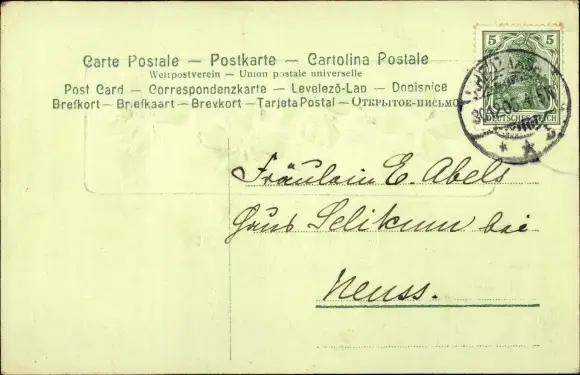 Carte Postale — Postkarte — Cartolina Postale
Weltpostverein — Union postale universelle
Post Card — Correspondenzkarte — Levelező-Lap — Dopisnice
Brefkort — Briefkaart — Brevkort — Tarjeta Postal — Открытое-письмо
5 5
DEUTSCHES REICH
Fräulein E. Abels
Haus Selikum bei
Neuss.